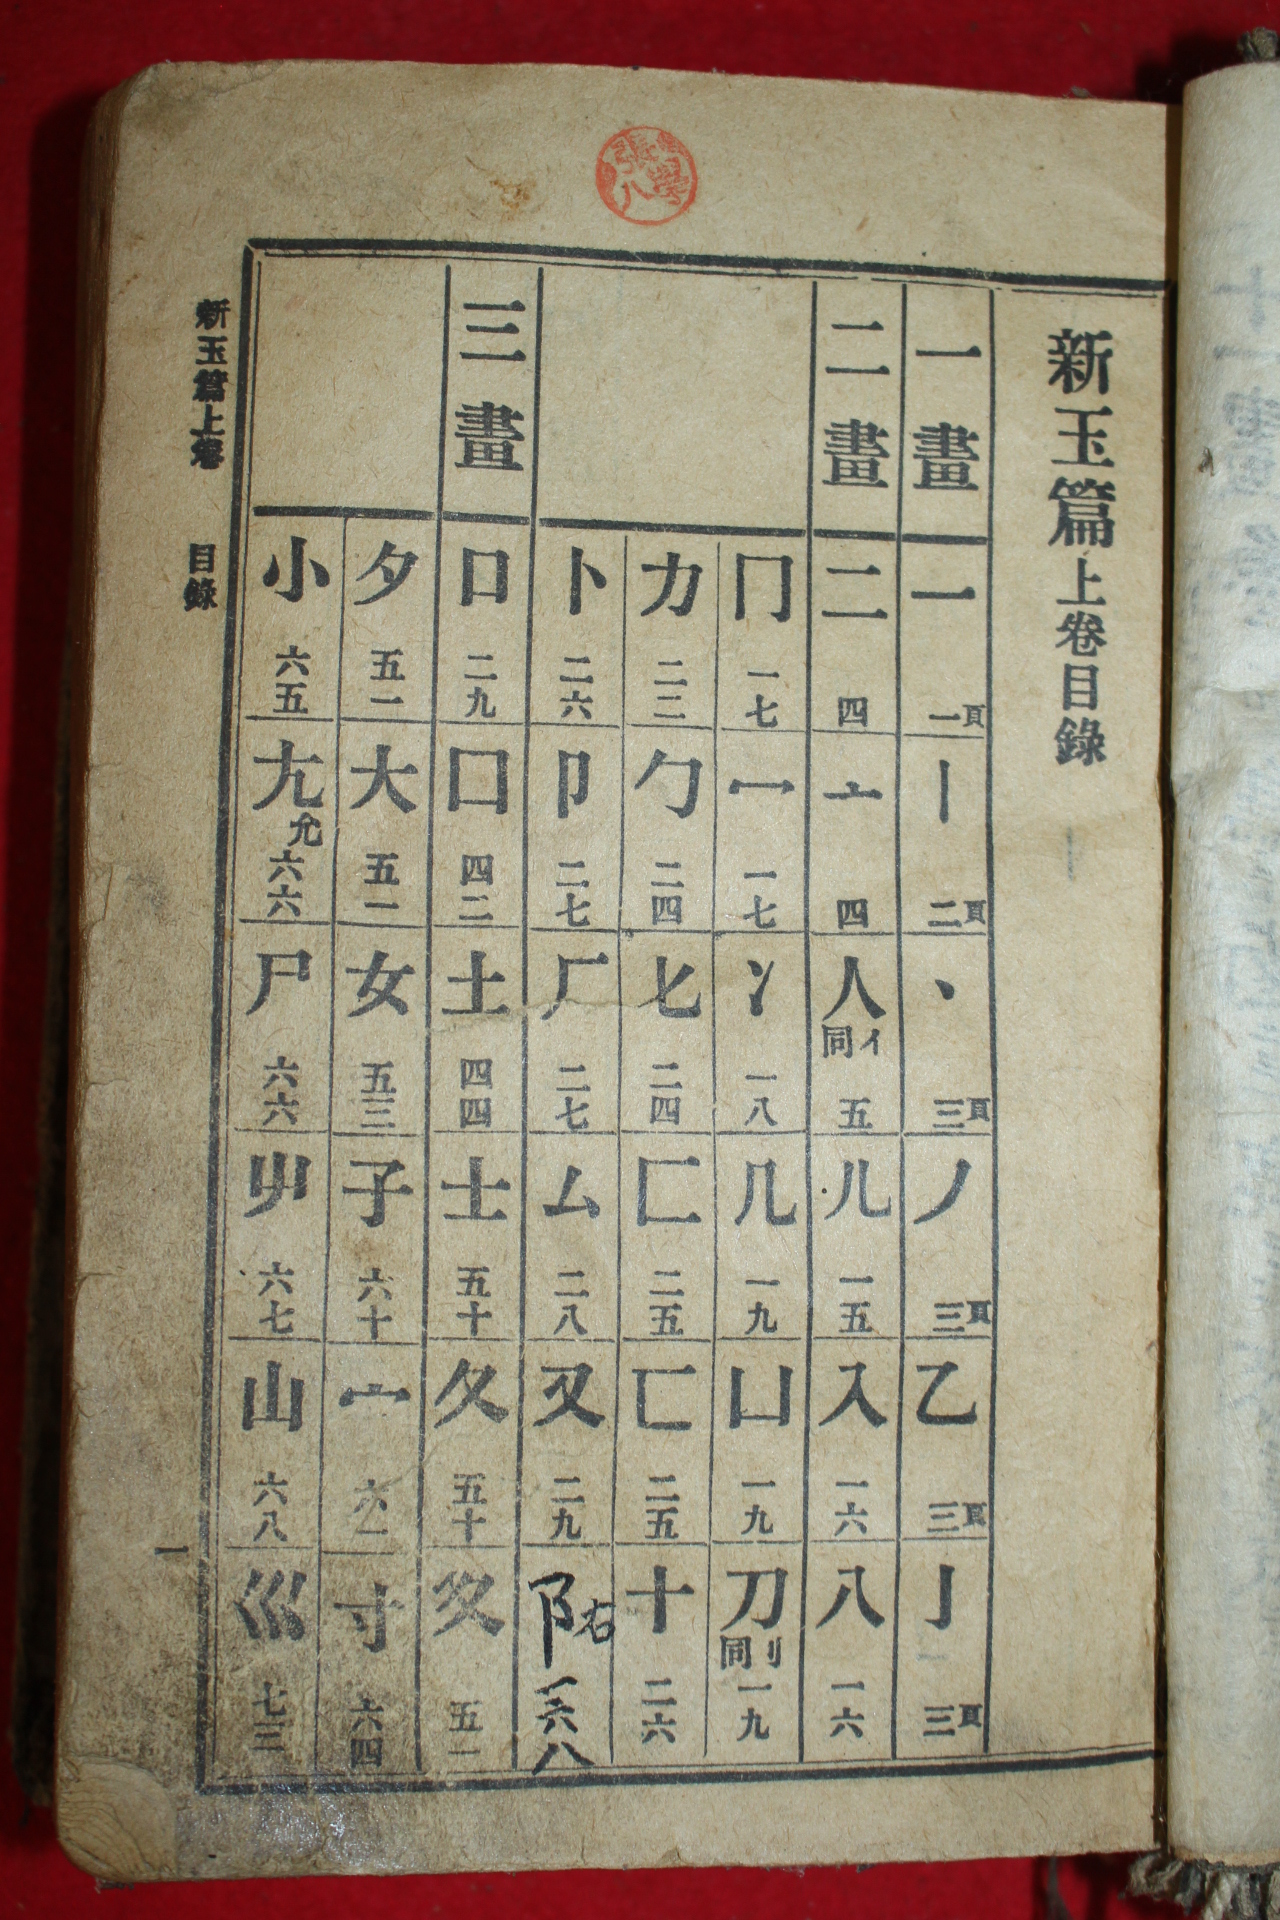 新玉篇上卷目錄
一畫
一 一頁
丨 二頁
丶 三頁
丿 三頁
乙 三頁
亅 三頁
二畫
二 四
亠 四
人 同亻 五
儿 一五
入 一六
八 一六
冂 一七
冖 一七
冫 一八
几 一九
凵 一九
刀 同刂 一九
力 二二
勹 二四
匕 二四
匚 二五
匸 二五
十 二六
卜 二六
卩 二七
厂 二七
厶 二八
又 二九
阝右 一六八
三畫
口 二九
囗 四二
土 四四
士 五十
夂 五十
夊 五一
夕 五一
大 五一
女 五三
子 六十
宀 六一
寸 六四
小 六五
尢 允 六六
尸 六六
屮 六七
山 六八
巛 七三
新玉篇上卷 目錄
一